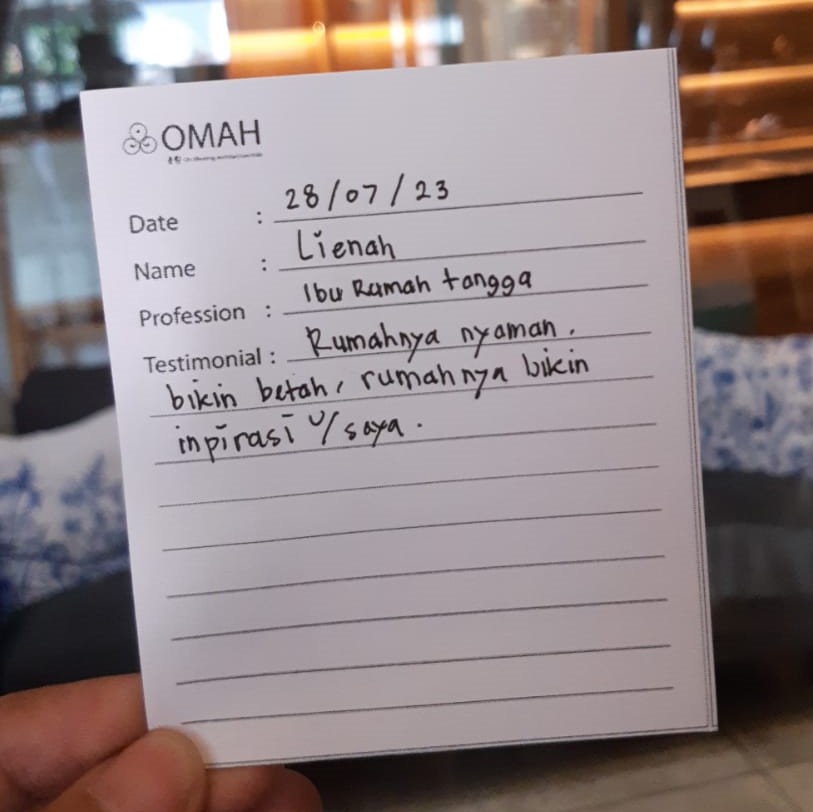 OMAH
Date : 28/07/23
Name : Lienah
Profession : Ibu Rumah tangga
Testimonial : Rumahnya nyaman.
bikin betah, rumahnya bikin
inpirasi u/ saya.